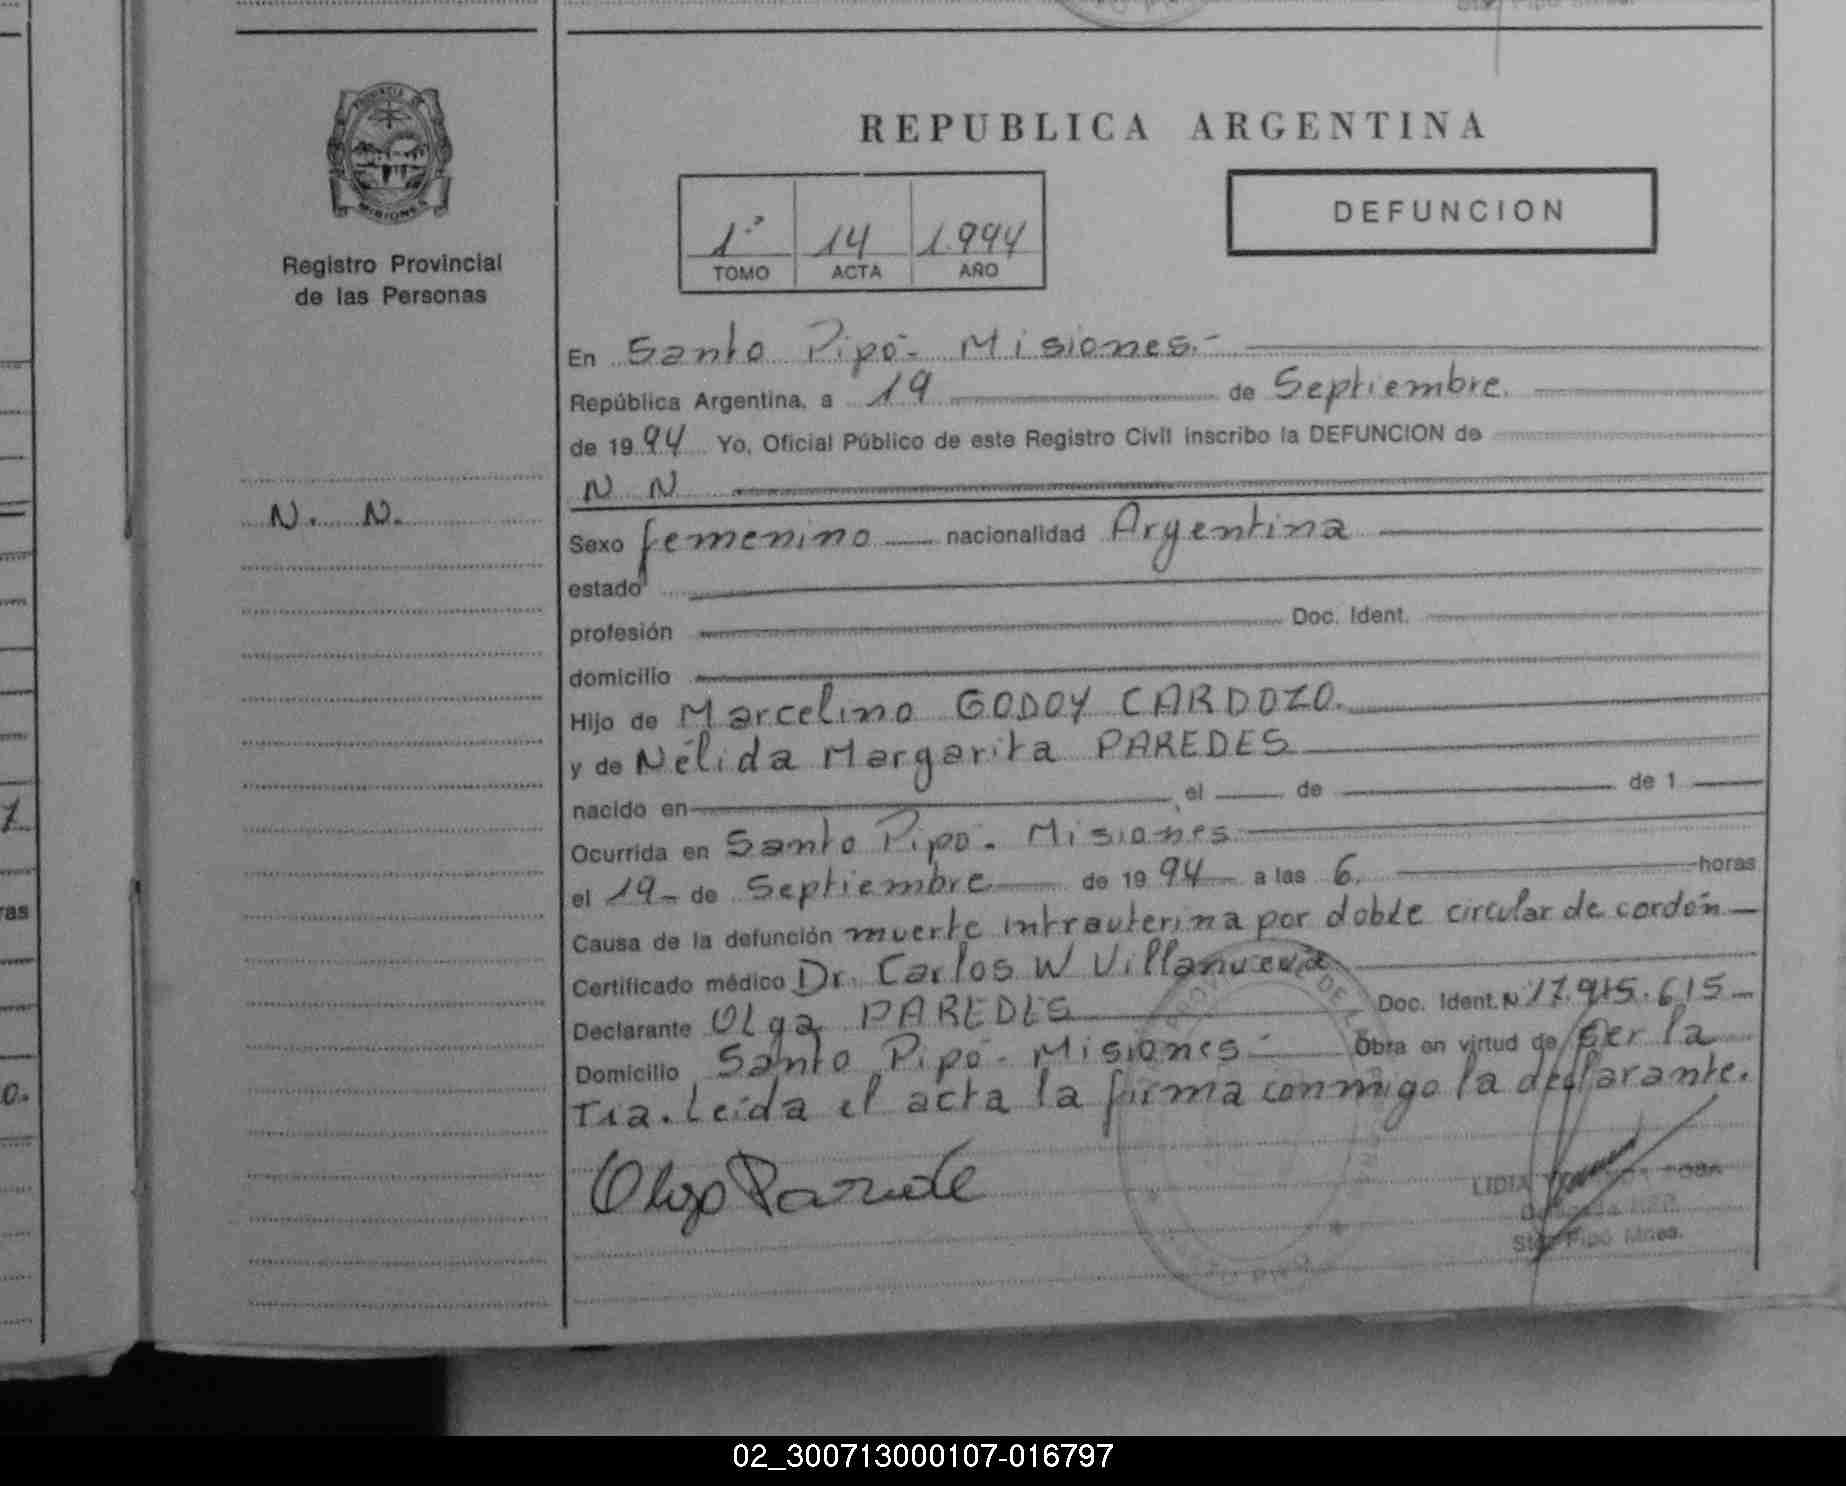 PROVINCIA DE
MISIONES
Registro Provincial
de las Personas
N. N.
REPUBLICA ARGENTINA
1º 14 1.994
TOMO ACTA AÑO
DEFUNCION
En Santo Pipó - Misiones.-
República Argentina, a 19 de Septiembre.
de 1994 Yo, Oficial Público de este Registro Civil inscribo la DEFUNCION de
N N
Sexo femenino nacionalidad Argentina
estado
profesión Doc. Ident.
domicilio
Hijo de Marcelino GODOY CARDOZO.
y de Nélida Margarita PAREDES
nacido en , el de de 1
Ocurrida en Santo Pipó - Misiones
el 19 - de Septiembre de 1994 a las 6. horas
Causa de la defunción muerte intrauterina por doble circular de cordón
Certificado médico Dr. Carlos W Villanueva
Declarante Olga PAREDES Doc. Ident. N 17.915.615 -
Domicilio Santo Pipó - Misiones - Obra en virtud de ser la
Tía. Leída el acta la firma conmigo la declarante.
Olga Parede
LIDIA
Sto. Pipó Mnes.
02_300713000107-016797